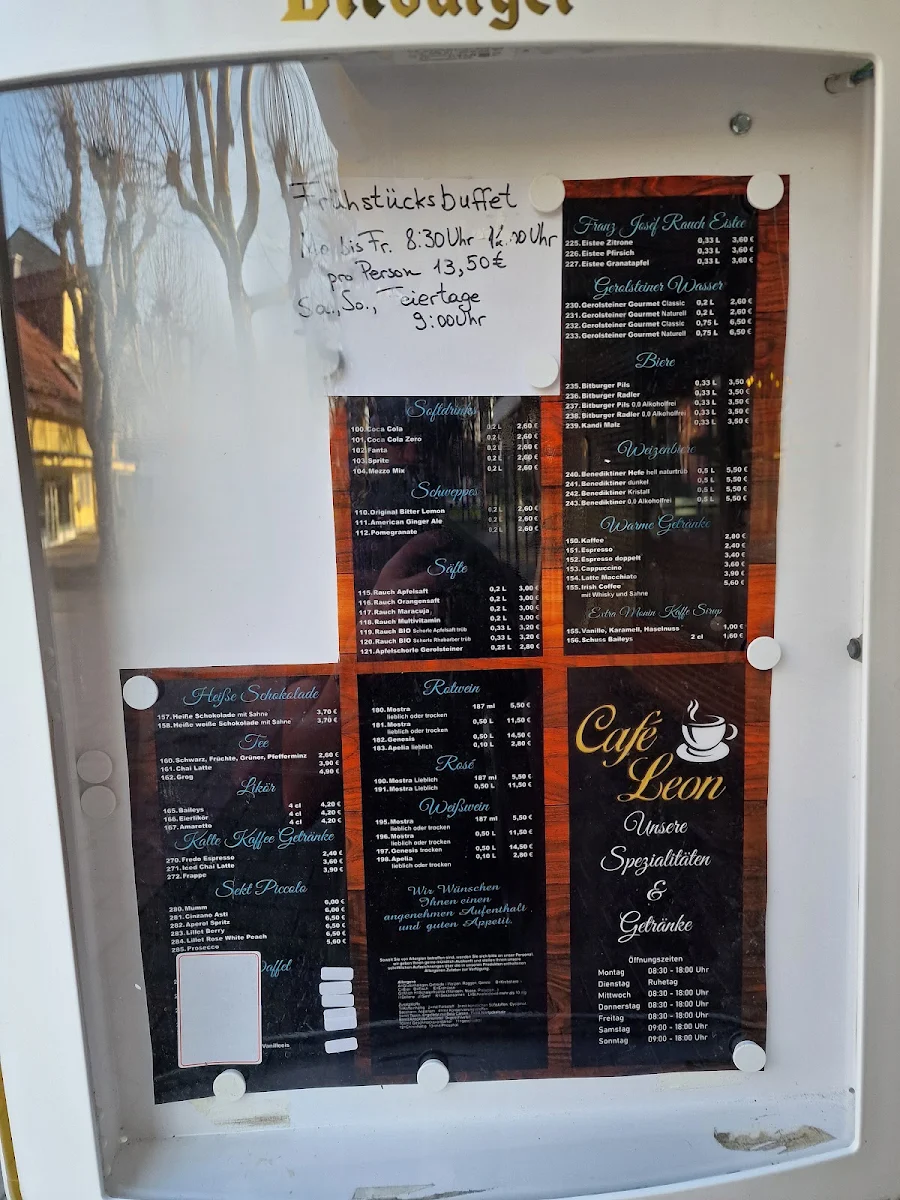 Bitburger
Frühstücksbuffet
Mo. bis Fr. 8:30 Uhr
pro Person 13,50€
Sa., So., Feiertage
9:00 Uhr
Franz Josef Rauch Eistee
225. Eistee Zitrone 0,33 L 3,60 €
226. Eistee Pfirsich 0,33 L 3,60 €
227. Eistee Granatapfel 0,33 L 3,60 €
Gerolsteiner Wasser
230. Gerolsteiner Gourmet Classic 0,2 L 2,60 €
231. Gerolsteiner Gourmet Naturell 0,2 L 2,60 €
232. Gerolsteiner Gourmet Classic 0,75 L 6,50 €
233. Gerolsteiner Gourmet Naturell 0,75 L 6,50 €
Biere
235. Bitburger Pils 0,33 L 3,50
236. Bitburger Radler 0,33 L 3,50 €
237. Bitburger Pils 0,0 Alkoholfrei 0,33 L 3,50 €
238. Bitburger Radler 0,0 Alkoholfrei 0,33 L 3,50 €
239. Kandi Malz 0,33 L 3,50 €
Weizenbiere
240. Benediktiner Hefe hell naturtrüb 0,5 L 5,50 €
241. Benediktiner dunkel 0,5 L 5,50 €
242. Benediktiner Kristall 0,5 L 5,50 €
243. Benediktiner 0,0 Alkoholfrei 0,5 L 5,50 €
Warme Getränke
150. Kaffee 2,80 €
151. Espresso 2,40 €
152. Espresso doppelt 3,40 €
153. Cappuccino 3,60 €
154. Latte Macchiato 3,90 €
155. Irish Coffee 5,60 €
mit Whisky und Sahne
Extra Monin Kaffe Sirup
155. Vanille, Karamell, Haselnuss 1,00 €
156. Schuss Baileys 2 cl 1,60 €
Softdrinks
100. Coca Cola 0,2 L 2,60 €
101. Coca Cola Zero 0,2 L 2,60 €
102. Fanta 0,2 L 2,60 €
103. Sprite 0,2 L 2,60 €
104. Mezzo Mix 0,2 L 2,60 €
Schweppes
110. Original Bitter Lemon 0,2 L 2,60 €
111. American Ginger Ale 0,2 L 2,60 €
112. Pomegranate 0,2 L 2,60 €
Säfte
115. Rauch Apfelsaft 0,2 L 3,00 €
116. Rauch Orangensaft 0,2 L 3,00 €
117. Rauch Maracuja 0,2 L 3,00 €
118. Rauch Multivitamin 0,2 L 3,00 €
119. Rauch BIO Schorle Apfelsaft trüb 0,33 L 3,20 €
120. Rauch BIO Schorle Rhabarber trüb 0,33 L 3,20 €
121. Apfelschorle Gerolsteiner 0,25 L 2,80 €
Heiße Schokolade
157. Heiße Schokolade mit Sahne 3,70 €
158. Heiße weiße Schokolade mit Sahne 3,70 €
Tee
160. Schwarz, Früchte, Grüner, Pfefferminz 2,60 €
161. Chai Latte 3,90 €
162. Grog 4,90 €
Likör
165. Baileys 4 cl 4,20 €
166. Eierlikör 4 cl 4,20 €
167. Amaretto 4 cl 4,20 €
Kalte Kaffee Getränke
270. Fredo Espresso 2,40 €
271. Iced Chai Latte 3,60 €
272. Frappe 3,90 €
Sekt Piccolo
280. Mumm 6,00 €
281. Cinzano Asti 6,00 €
282. Aperol Spritz 6,50 €
283. Lillet Berry 6,50 €
284. Lillet Rose White Peach 6,50 €
285. Prosecco 5,60 €
Waffel
Vanilleeis
Rotwein
180. Mostra 187 ml 5,50 €
lieblich oder trocken
181. Mostra 0,50 L 11,50 €
lieblich oder trocken
182. Genesis 0,50 L 14,50 €
183. Apelia lieblich 0,10 L 2,80 €
Rosé
190. Mostra Lieblich 187 ml 5,50 €
191. Mostra Lieblich 0,50 L 11,50 €
Weißwein
195. Mostra 187 ml 5,50 €
lieblich oder trocken
196. Mostra 0,50 L 11,50 €
lieblich oder trocken
197. Genesis trocken 0,50 L 14,50 €
198. Apelia 0,10 L 2,80 €
lieblich oder trocken
Wir Wünschen
Ihnen einen
angenehmen Aufenthalt
und guten Appetit.
Café
Leon
Unsere
Spezialitäten
&
Getränke
Öffnungszeiten
Montag 08:30 - 18:00 Uhr
Dienstag Ruhetag
Mittwoch 08:30 - 18:00 Uhr
Donnerstag 08:30 - 18:00 Uhr
Freitag 08:30 - 18:00 Uhr
Samstag 09:00 - 18:00 Uhr
Sonntag 09:00 - 18:00 Uhr